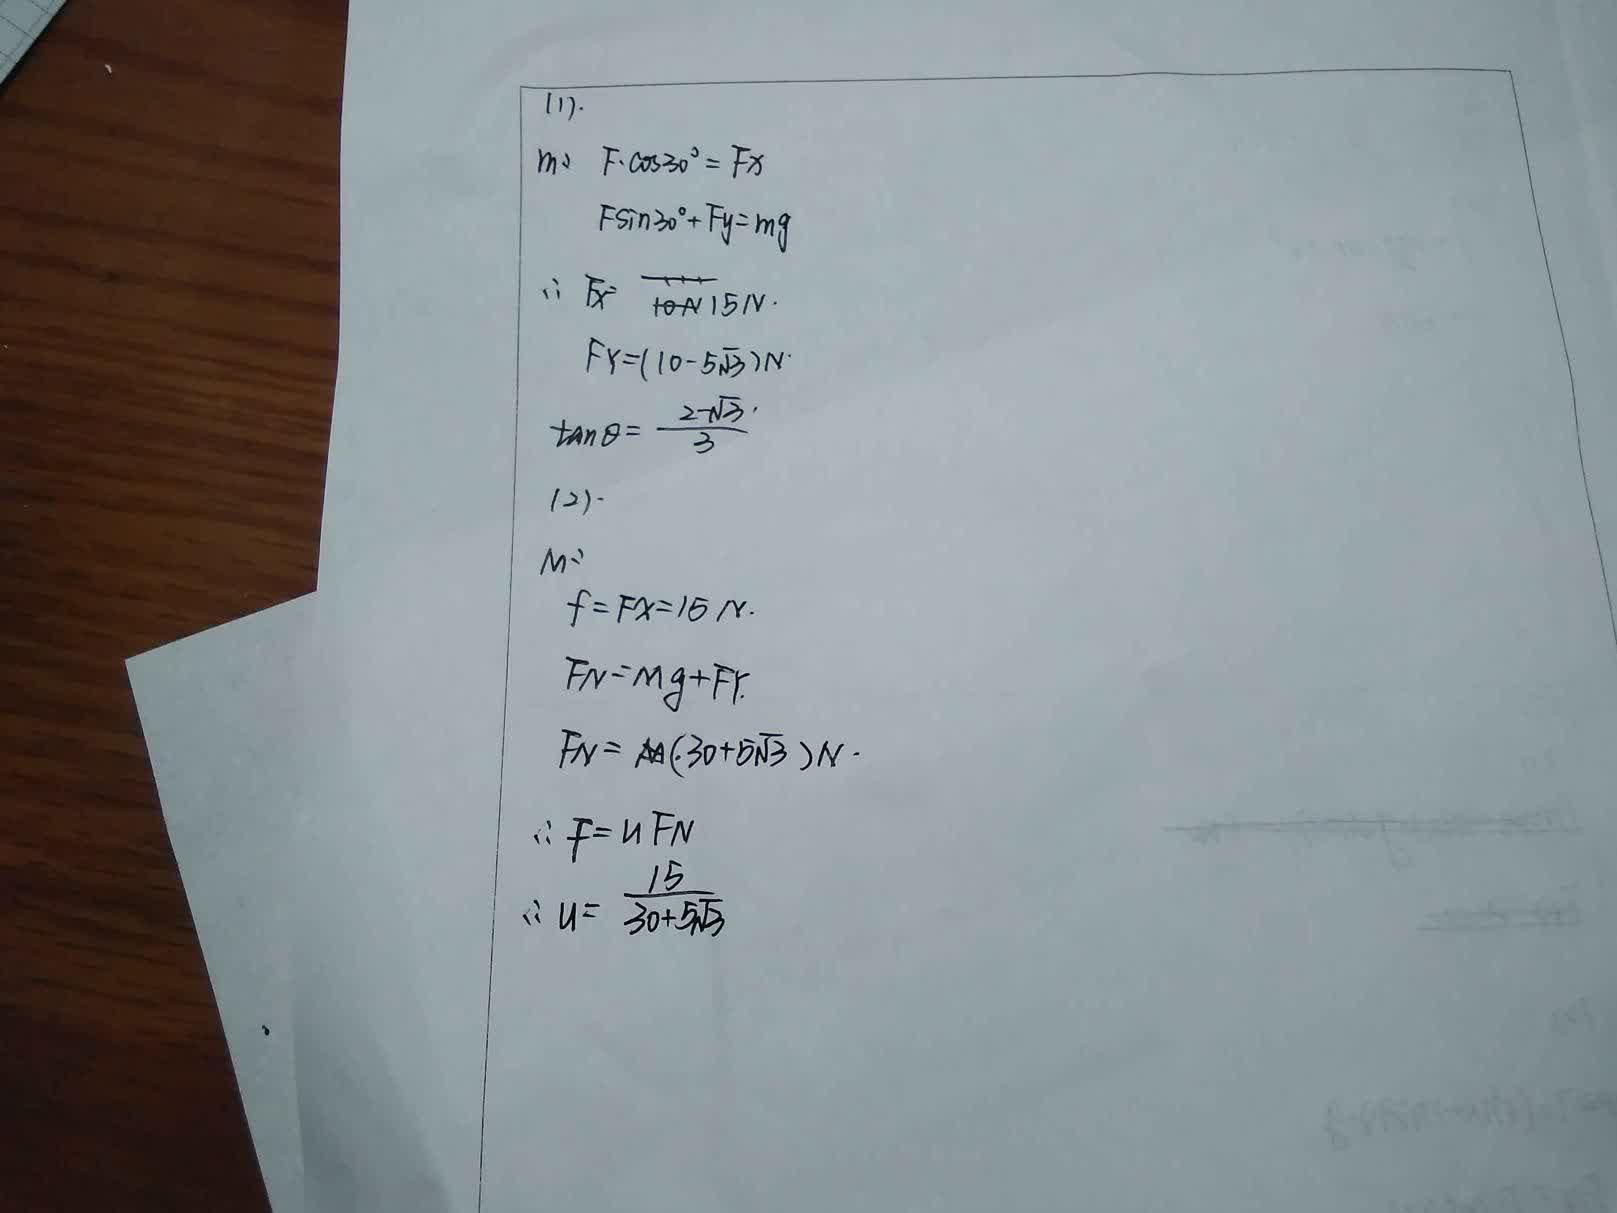 (1).
m: F·cos30°=Fx
Fsin30°+Fy=mg
∴ Fx= 10N 15N.
FY=(10-5√3)N.
tanθ= 2-√3. / 3
(2).
M:
f=FX=15N.
FN=Mg+FY.
FN= (30+5√3)N.
∴ F=uFN
∴ u= 15 / 30+5√3